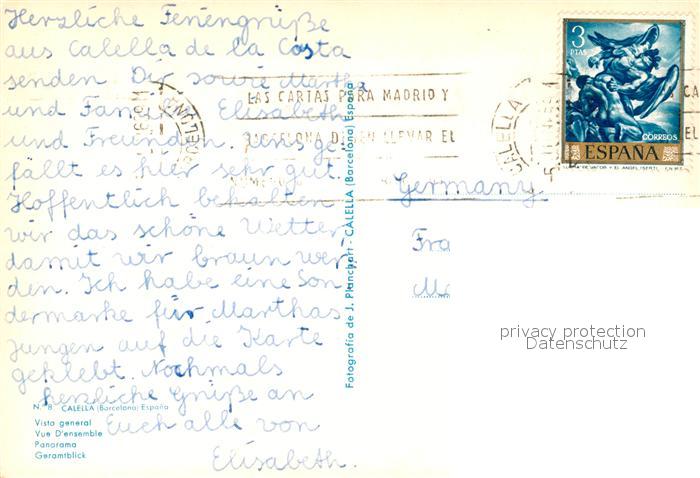 Herzliche Feriengrüße
aus Calella de la Costa
senden Dir sowie Martha
und Familie Elisabeth
und Freunden. Uns ge-
fällt es hier sehr gut.
Hoffentlich behalten
wir das schöne Wetter
damit wir braun wer-
den. Ich habe eine Son
dermarke für Marthas
Jungen auf die Karte
geklebt. Nochmals
herzliche Grüße an
Euch alle von
Elisabeth.
N.° 8. CALELLA (Barcelona) España
Vista general
Vue D'ensemble
Panorama
Geramtblick
Fotografía de J. Planchart - CALELLA (Barcelona) España
LAS CARTAS PARA MADRID Y
BARCELONA DEBEN LLEVAR EL
CALELLA
3
PTAS
CORREOS
ESPAÑA
Germany
Fra
privacy protection
Datenschutz